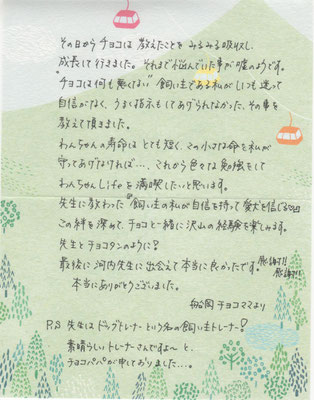 その日からチョコは教えたことをみるみる吸収し、
成長して行きました。それまで悩んでいた事が嘘のようです。
"チョコは何も悪くない" 飼い主である私がいつも迷って
自信がなく、うまく指示もしてあげられなかった、その事を
教えて頂きました。
わんちゃんの寿命はとても短く、この小さな命を私が
守ってあげなければ…、これから色々な勉強をして
わんちゃんLifeを満喫したいと思います。
先生に教わった"飼い主の私が自信を持って愛犬を信じる"
この絆を深めて、チョコと一緒に沢山の経験を楽しみます。
先生とチョコタンのように?
最後に河内先生に出会えて本当に良かったです。感謝!!
感謝!!
本当にありがとうございました。
船岡チョコママより
P.S 先生はドッグトレーナーという名の飼い主トレーナー?
素晴らしいトレーナーさんですよ〜と、
チョコパパが申しておりました…。